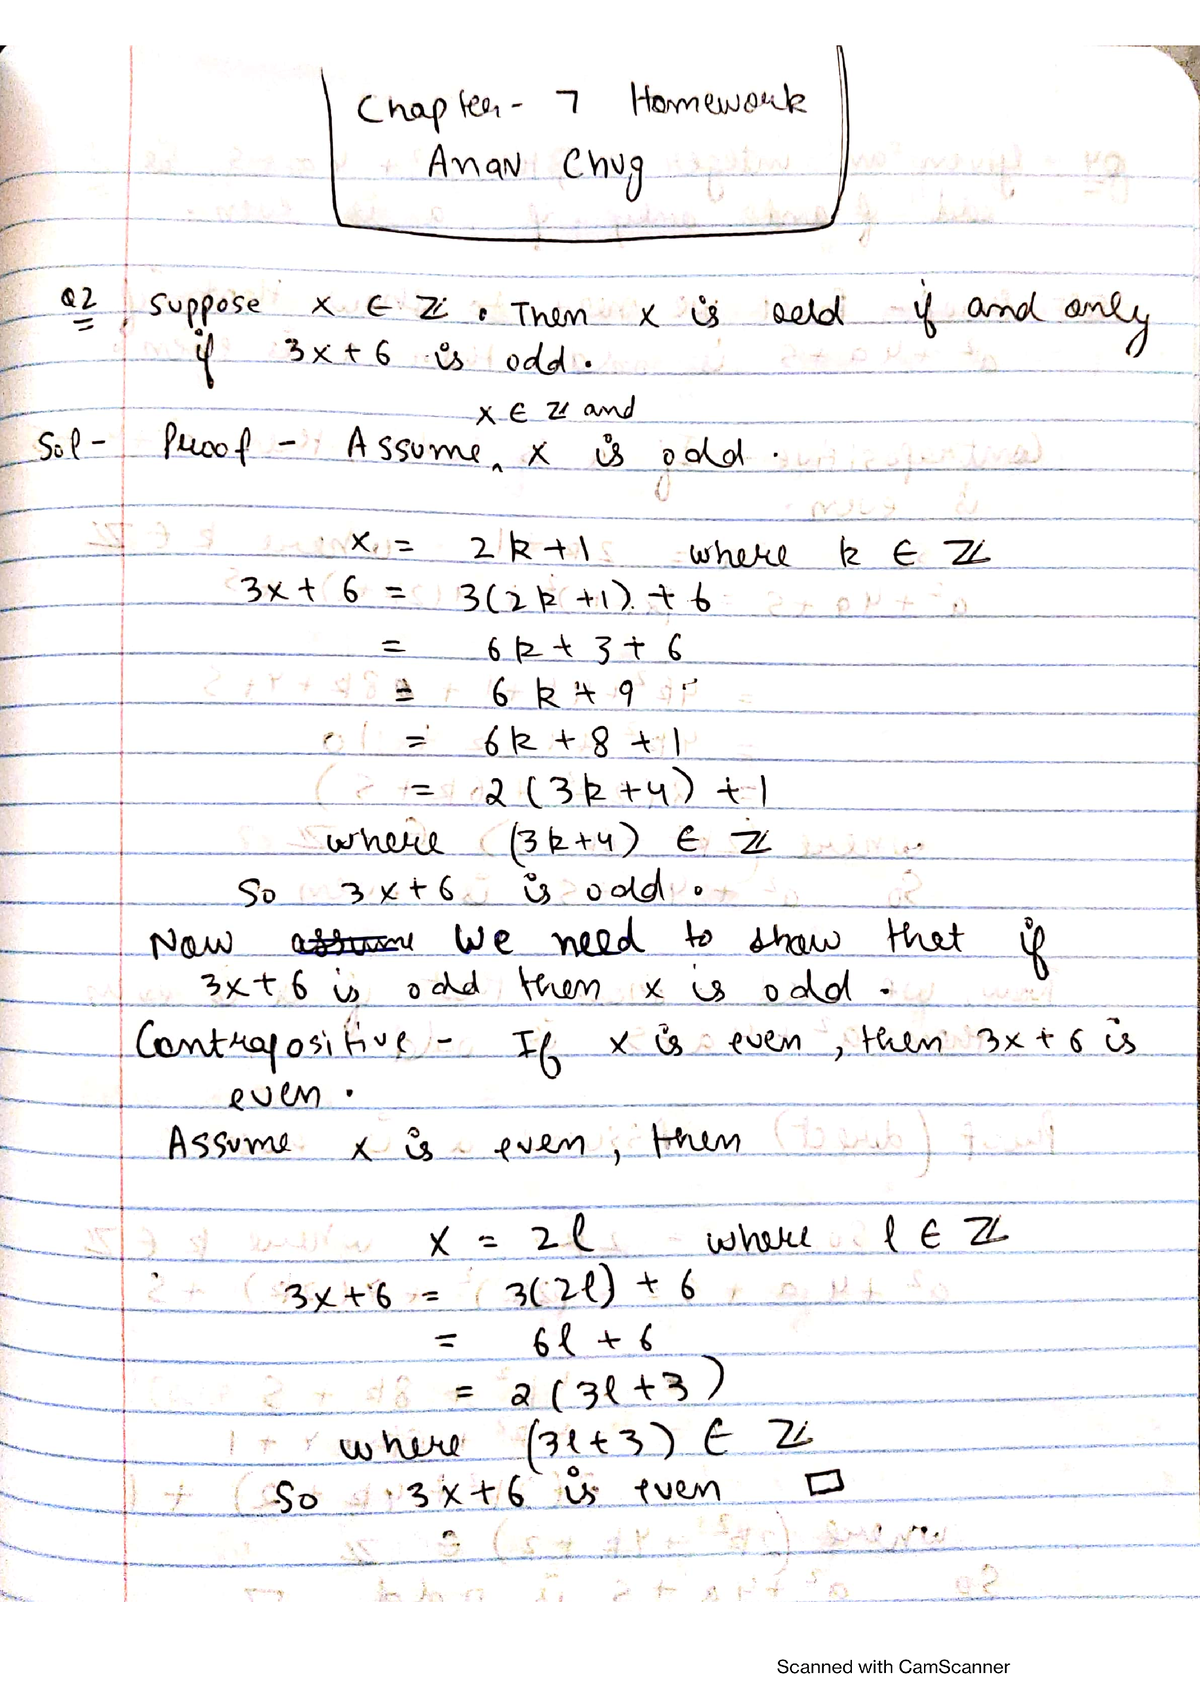 Chapter - 7 Homework
Anav Chug
Q2 Suppose x ∈ ℤ. Then x is odd if and only
if 3x + 6 is odd.
x ∈ ℤ and
Sol - Proof - Assume ‸ x is odd.
x = 2k + 1 where k ∈ ℤ
3x + 6 = 3(2k + 1) + 6
= 6k + 3 + 6
= 6k + 9
= 6k + 8 + 1
= 2(3k + 4) + 1
where (3k + 4) ∈ ℤ
So 3x + 6 is odd.
Now assume We need to show that if
3x + 6 is odd then x is odd.
Contrapositive - If x is even, then 3x + 6 is
even.
Assume x is even, then
x = 2l where l ∈ ℤ
3x + 6 = 3(2l) + 6
= 6l + 6
= 2(3l + 3)
where (3l + 3) ∈ ℤ
So 3x + 6 is even □
Scanned with CamScanner